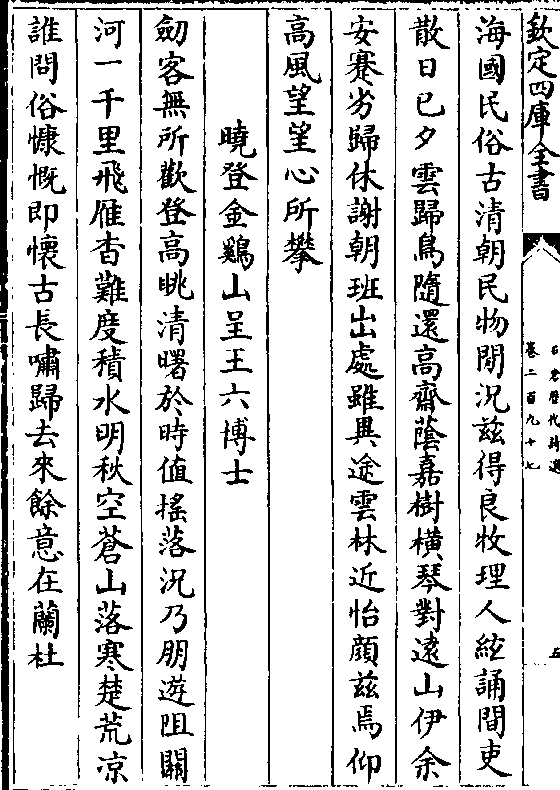 欽定四庫全書
石倉歷代詩選
卷二百九十七
五
海國民俗古清朝民物閒況兹得良牧理人絃誦間吏
散日已夕雲歸鳥隨還高齋蔭嘉樹橫琴對遠山伊余
安蹇劣歸休謝朝班出處雖異途雲林近怡顔兹焉仰
高風望望心所攀
曉登金鷄山呈王六博士
劒客無所歡登高眺清曙於時值搖落況乃朋遊阻關
河一千里飛雁杳難度積水明秋空蒼山落寒楚荒凉
誰問俗慷慨即懷古長嘯歸去來餘意在蘭杜